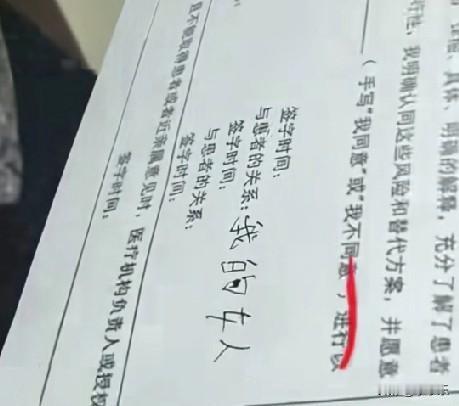 具体、明确的解释，充分了解了患者
我明确认问这些风险和替代方案，并愿意
（手写“我同意”或“我不同意”，进行以
签字时间：
与患者的关系：我的女人
签字时间：
与患者的关系：
签字时间：
且不能取得患者或者近亲属意见时，医疗机构负责人或授权
签字时间：